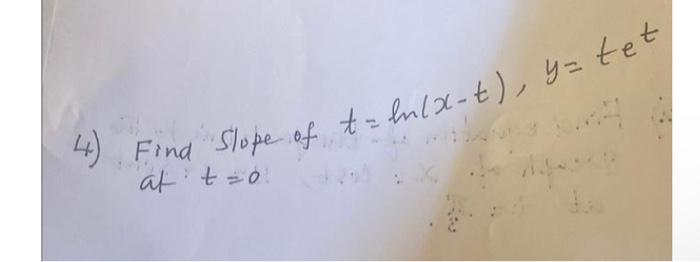 4) Find Slope of t = ln(x-t), y = te^t
at t = 0